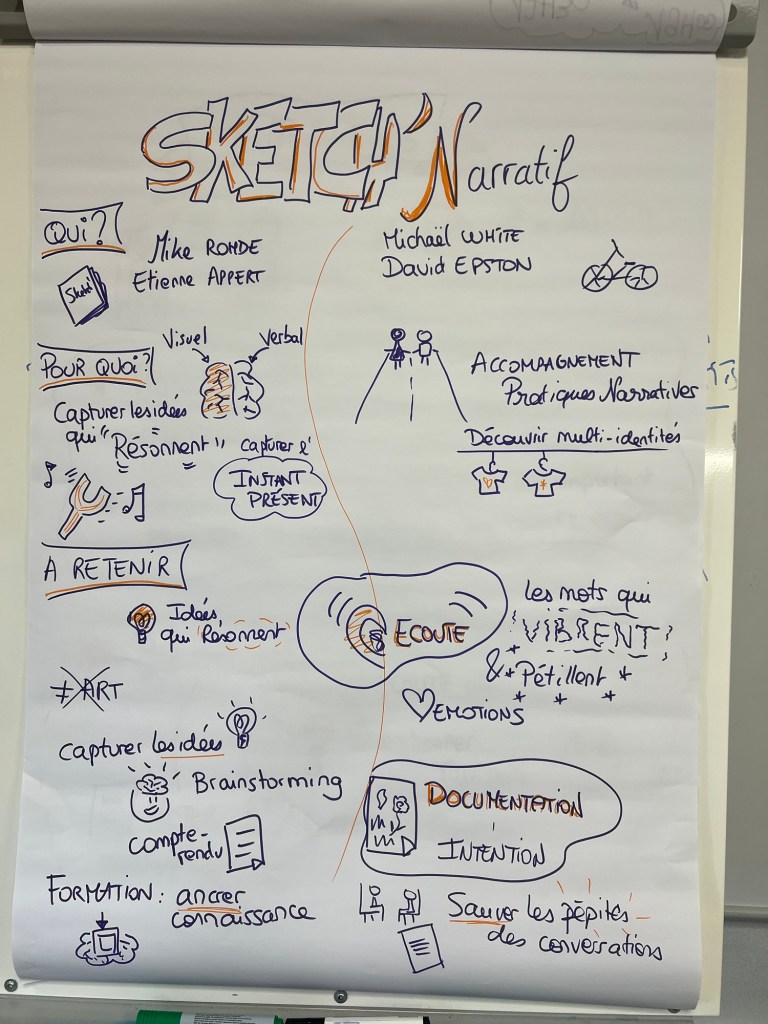 SKETCH' Narratif
QUI?
Mike ROHDE
Etienne APPERT
Sketch
Michaël WHITE
David EPSTON
POUR QUOI?
Visuel
Verbal
Capturer les idées
qui "Résonnent"
capturer l'
INSTANT
PRÉSENT
ACCOMPAGNEMENT
Pratiques Narratives
Découvrir multi-identités
A RETENIR
Idées
qui Résonnent
ECOUTE
les mots qui
VIBRENT
& Pétillent
EMOTIONS
≠ ART
capturer les idées
Brainstorming
compte-
rendu
DOCUMENTATION
INTENTION
FORMATION: ancrer
connaissance
Sauver les pépites
des conversations